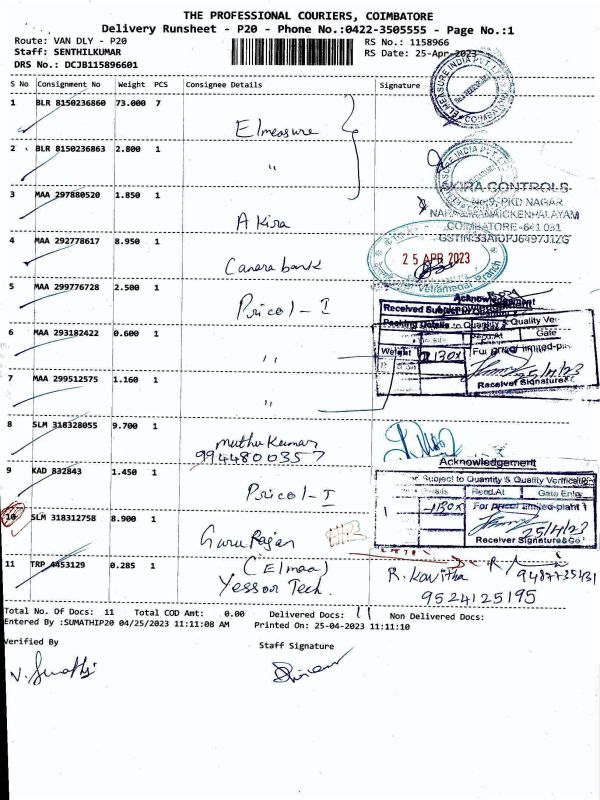 THE PROFESSIONAL COURIERS, COIMBATORE
Delivery Runsheet - P20 - Phone No.:0422-3505555 - Page No.:1
Route: VAN DLY - P20
RS No.: 1158966
Staff: SENTHILKUMAR
RS Date: 25-Apr-2023
DRS No.: DCJB115896601
S No Consignment No Weight PCS Consignee Details Signature
1 BLR 8150236860 73.000 7
Elmeasure
ELMEASURE INDIA PVT LTD
COIMBATORE
2 BLR 8150236863 2.800 1
"
3 MAA 297880520 1.850 1
AKIRA CONTROLS
No:9, PKD NAGAR
NARASIMANAICKENPALAYAM
COIMBATORE-641 031
A Kira
4 MAA 292778617 8.950 1
25 APR 2023
Canara bank
5 MAA 299776728 2.500 1
Pricol - I
Acknowledgement
Received Subject to Quantity & Quality Ver
Packing Details Recd.At Gate
6 MAA 293182422 0.600 1
"
Weight 1 BOX For pricol limited-pla
25/4/23
Receiver Signature
7 MAA 299512575 1.160 1
"
8 SLM 318328055 9.700 1
muthu Kumar
9944800357
Acknowledgement
9 KAD 832843 1.450 1
Pricol - I
Subject to Quantity & Quality Verification
Details Recd.At Gate Entry
1 BOX For pricol limited-plant 1
25/4/23
Receiver Signature&
10 SLM 318312758 8.900 1
Guru Rajan
11 TRP 4453129 0.285 1
(Elmaa)
Yessor Tech.
R. Kavitha
9487735431
9524125195
Total No. Of Docs: 11 Total COD Amt: 0.00 Delivered Docs: 11 Non Delivered Docs:
Entered By :SUMATHIP20 04/25/2023 11:11:08 AM Printed On: 25-04-2023 11:11:10
Verified By
Staff Signature
V. Sumathi